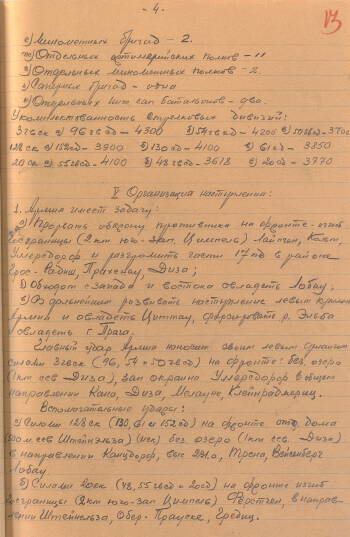 - 4 -
13
е) Минометных бригад - 2.
ж) Отдельных артиллерийских полков - 11
з) Отдельных минометных полков - 2.
и) Саперных бригад - одна
к) Отдельных инж сап батальонов - два.
Укомплектованность стрелковых дивизий:
31гвск а) 96гвсд - 4300 б) 54гвсд - 4200 в) 50гвсд - 3700
128ск а) 152сд - 3900 б) 130сд - 4100 в) 61сд - 3850
20ск а) 55гвсд - 4100 б) 48гвсд - 3618 в) 20сд - 3770
V Организация наступления:
1. Армия имеет задачу:
а) Прорвать оборону противника на фронте изгиб
госграницы (2 км юго-зап. Цимпель)
Уллерсдорф и разгромить части 17 в районе
Гросс-Радиш, Диза;
б) Обходом с запада и востока овладеть Лобау;
в) В дальнейшем развивать наступление левым крылом
Армии и овладеть Циттау, форсировать р. Эльба
и овладеть г. Прага.
Главный удар Армия наносит своим левым флангом
силами 3гвск (96, 54 и 50гвсд) на фронте: без. озеро
(1 км ссв Диза), зап окраина Уллерсдорф в общем
направлении Кана, Диза, Мелауне,
Вспомогательные удары:
а) Силами 128ск (130, 61 и 152сд) на фронте отд. дома
Штейнэльза) (иск) без озеро (1 км ссв. Диза)
в направлении выс 241.0, Вейсенберг
Лобау.
б) Силами 20ск (48, 55гвсд и 20сд) на фронте изгиб
госграницы (2 км юго-зап Цимпель) в направлении
Штейнэльза, Обер-Прауске, Гредиц.